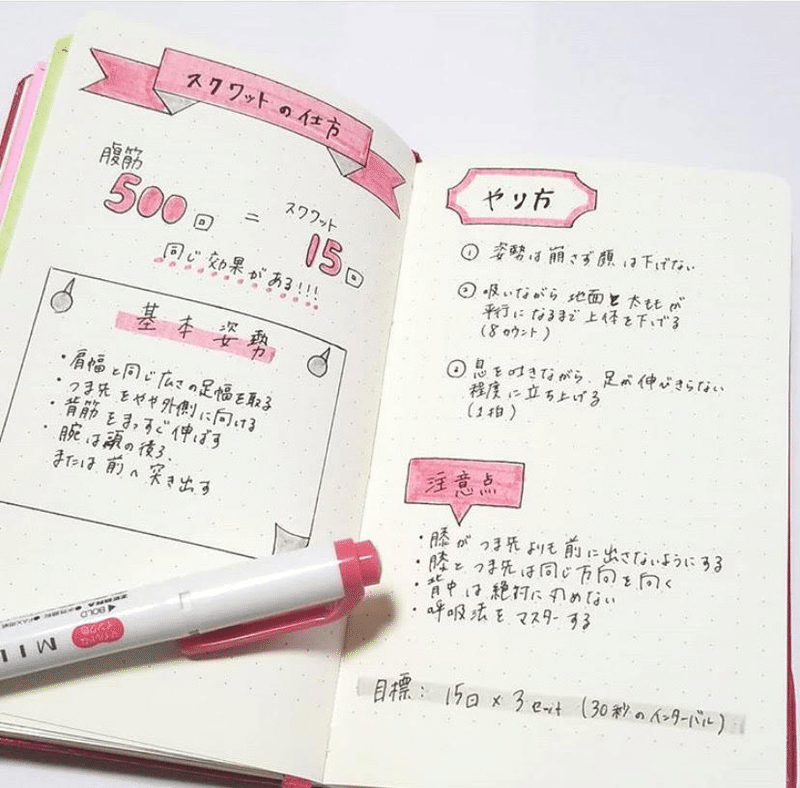 スクワットの仕方
腹筋
500回 = スクワット
15回
同じ効果がある!!!
基本姿勢
・肩幅と同じ広さの足幅を取る
・つま先をやや外側に向ける
・背筋をまっすぐ伸ばす
・腕は頭の後ろ、
または前へ突き出す
やり方
① 姿勢は崩さず顔は下げない
② 吸いながら地面と太ももが
平行になるまで上体を下げる
(8カウント)
③ 息を吐きながら、足が伸びきらない
程度に立ち上げる
(1拍)
注意点
・膝がつま先よりも前に出さないようにする
・膝とつま先は同じ方向を向く
・背中は絶対に丸めない
・呼吸法をマスターする
目標: 15回×3セット (30秒のインターバル)
ZEBRA
◀BOLD
マイルドな
インク色
MIL